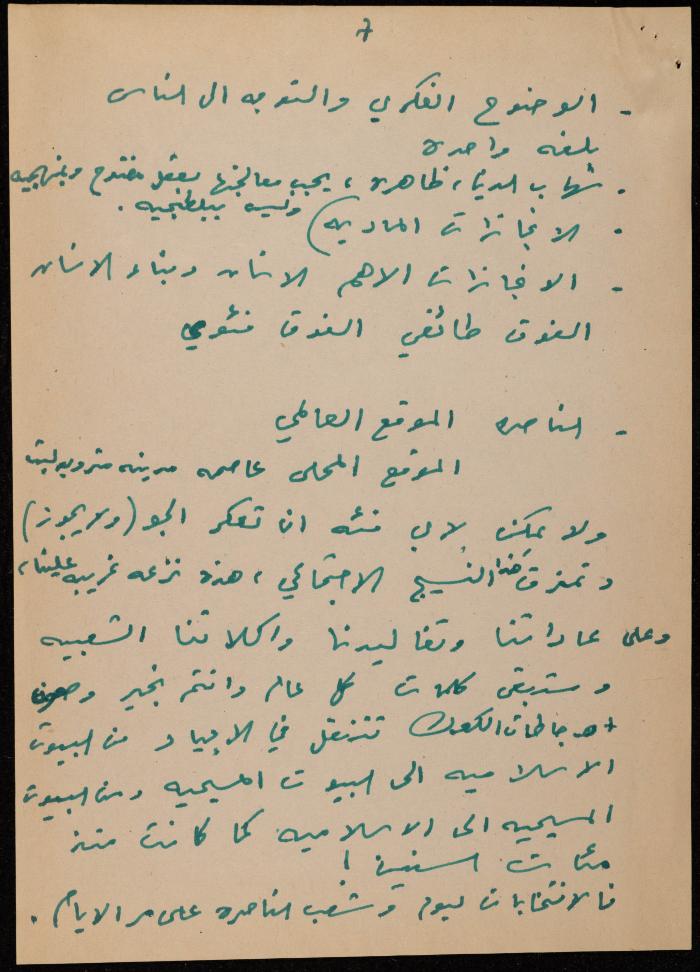 7
- الوضوح الفكري والتوجه الى الناس
بلغه واحده
- شهاب الدين، ظاهره، يجب معالجتها بعقل مفتوح وبمنهجيه
وليس ببلطجيه.
- الانجازات الماديه)
- الانجازات الاهم الانسان وبناء الانسان
الفوق طائفي الفوق فئوي
- الناصره الموقع العالمي
الموقع المحلي عاصمه مدينه
ولا يمكن لاي فئه ان تعكر الجو (ولا يجوز)
وتمزق هذا النسيج الاجتماعي، هذه نزعه غريبه علينا،
وعلى عاداتنا وتقاليدنا واكلاتنا الشعبيه
وستبقى كلمات كل عام وانتم بخير وصحون
+ الكعك تتنقل في الاعياد من البيوت
الاسلاميه الى البيوت المسيحيه ومن البيوت
المسيحيه الى الاسلاميه كما كانت منذ
مئات السنين!
فالانتخابات ليوم وشعب الناصره على مر الايام.